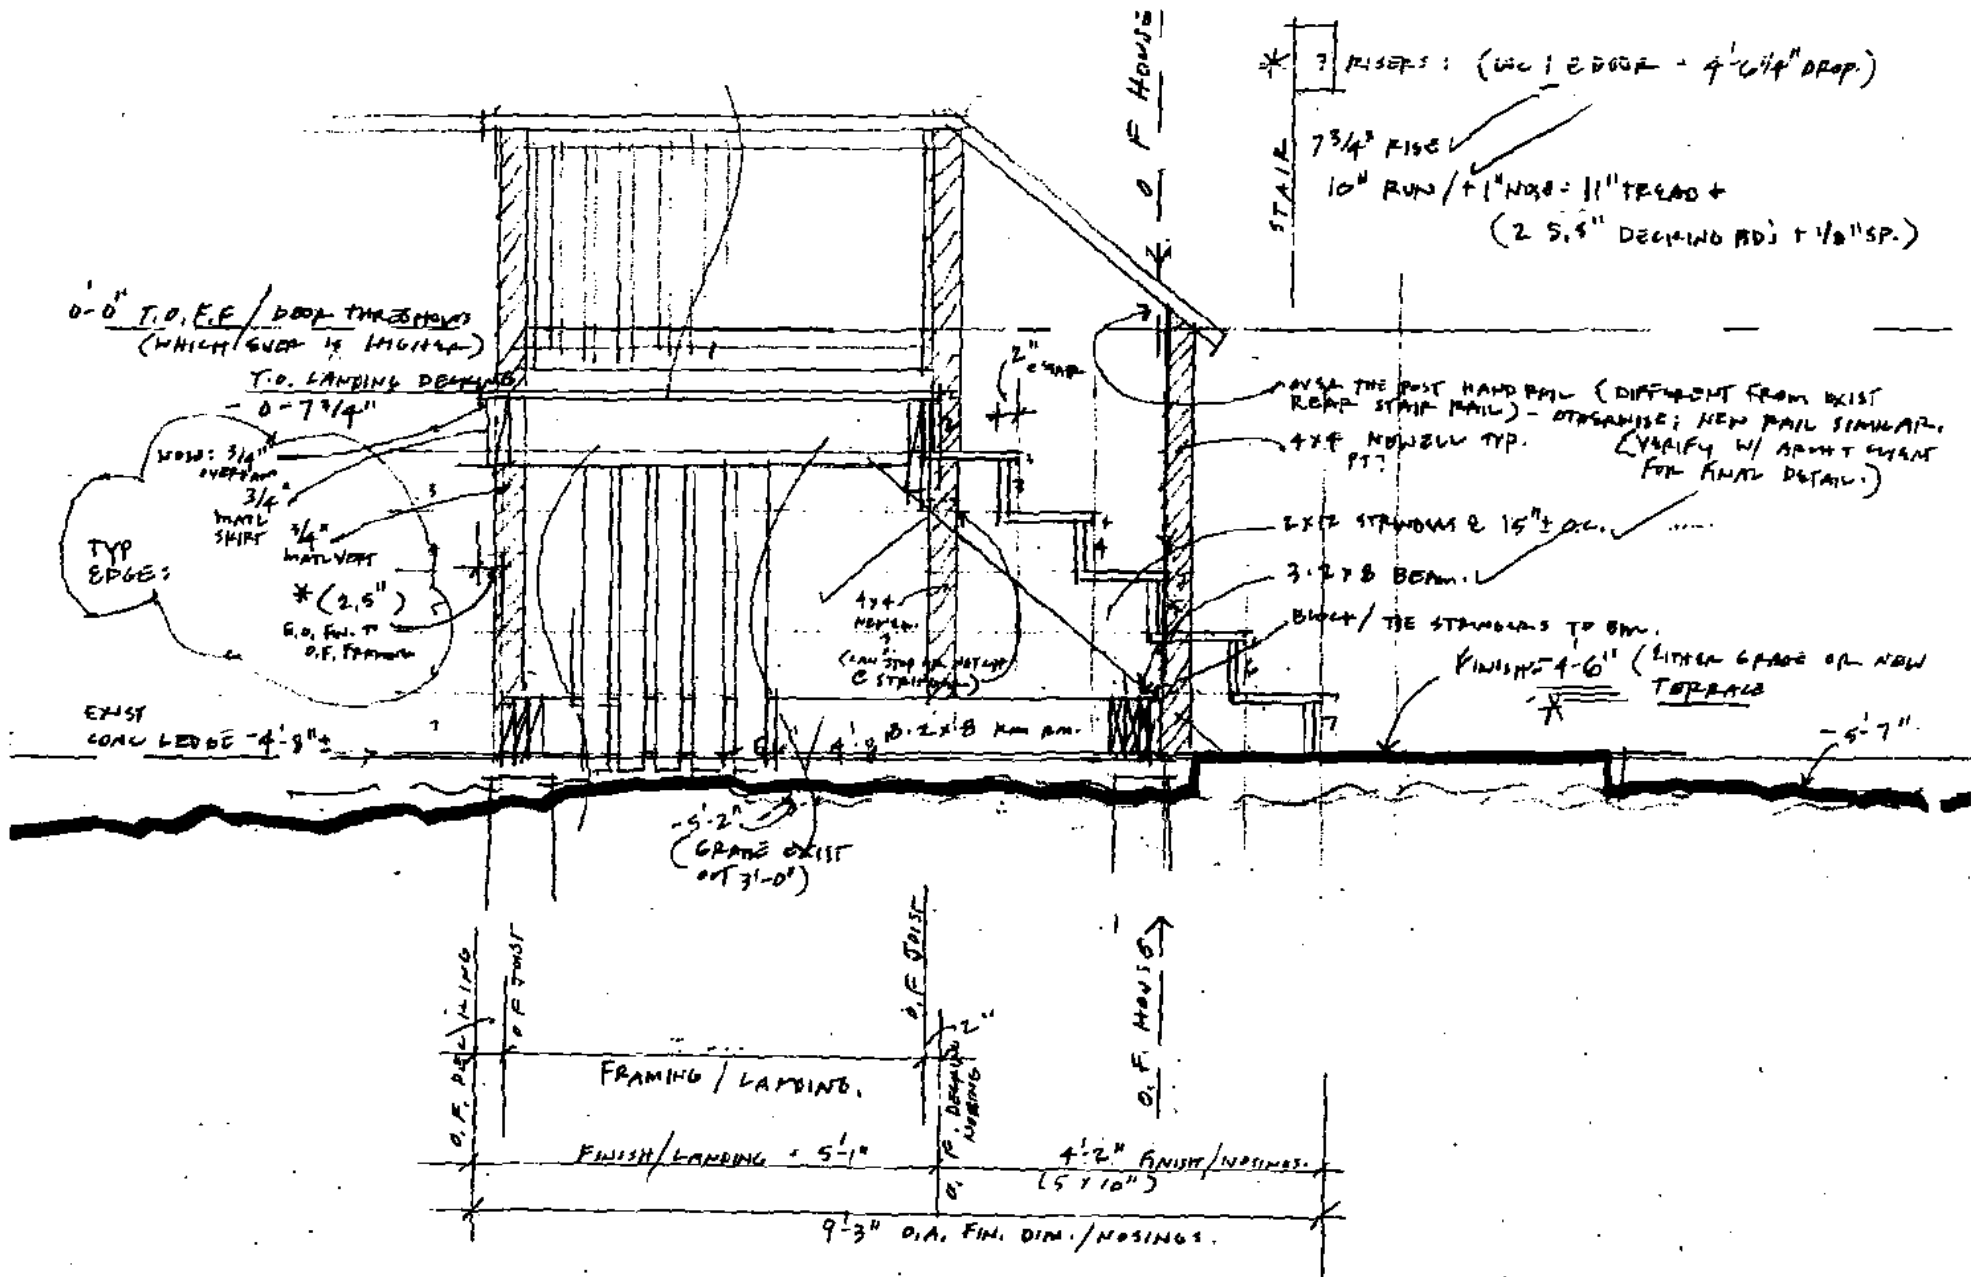 O F HOUSE
* 7 RISERS: (INCL EDGER - 4'-6 1/4" DROP.)
STAIR
7 3/4" RISE
10" RUN / +1" NOSE = 11" TREAD +
(2 5.5" DECKING BD'S + 1/8" SP.)
0'-0" T.O. F.F / DOOR THRESHOLD
(WHICH EVER IS HIGHER)
T.O. LANDING DECKING
- 0-7 3/4"
2"
NOSE: 3/4"
OVERHANG
3/4"
MATL
SKIRT
3/4"
MATL VERT
TYP
EDGE:
* (2.5")
E.O. FIN. TO
O.F. FRAMING
OVER THE POST HAND RAIL (DIFFERENT FROM EXIST
REAR STAIR RAIL) - OTHERWISE; NEW RAIL SIMILAR.
(VERIFY W/ ARCH + CLIENT
FOR FINAL DETAIL.)
4X4 NEWELL TYP.
PT?
2X12 STRINGERS @ 15"± O.C.
3-2X8 BEAM.
BLOCK / TIE STRINGERS TO BM.
FINISH = -4'-6" (EITHER GRADE OR NEW
TERRACE
*
4X4
NEWELL
(CAN STOP OR NOTCH
@ STRINGER)
EXIST
CONC LEDGE -4'-8"±
3-2X8 RIM BM.
-5'-7"
-5'-2"
(GRADE EXIST
OUT 3'-0")
2
3
4
6
7
O.F. DECKING
O F JOIST
O.F JOIST
2"
O.F. DECKING
NOSING
O.F. HOUSE
FRAMING / LANDING.
FINISH/LANDING = 5'-1"
4'-2" FINISH/NOSINGS.
(5 X 10")
9'-3" O.A. FIN. DIM./NOSINGS.